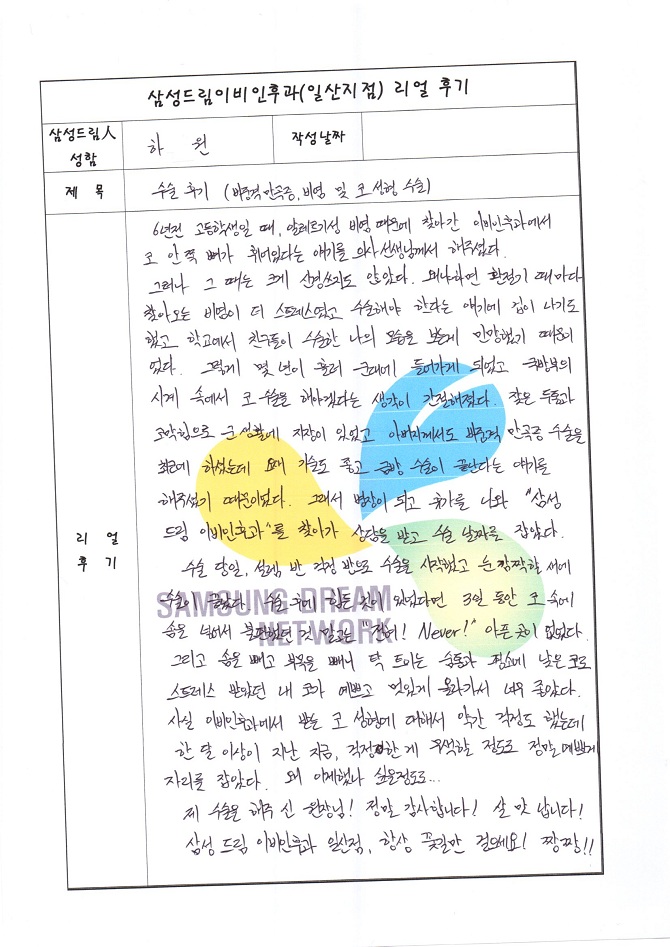 삼성드림이비인후과(일산지점) 리얼 후기
삼성드림人 성함
하 원
작성날짜
제 목
수술 후기 (비중격 만곡증, 비염 및 코 성형 수술)
리 얼
후 기
6년전 고등학생일 때, 알레르기성 비염 때문에 찾아간 이비인후과에서
코 안 쪽 뼈가 휘어있다는 얘기를 의사선생님께서 해주셨다.
그러나 그 때는 크게 신경쓰지도 않았다. 왜냐하면 환절기 때마다
찾아오는 비염이 더 스트레스였고 수술해야 한다는 얘기에 겁이 나기도
했고 학교에서 친구들이 수술한 나의 모습을 보는게 민망했기 때문이
었다. 그렇게 몇 년이 흘러 군대에 들어가게 되었고 국방부의
시계 속에서 코 수술을 해야겠다는 생각이 간절해졌다. 잦은 두통과
코막힘으로 군 생활에 지장이 있었고 아버지께서도 비중격 만곡증 수술을
최근에 하셨는데 요새 기술도 좋고 금방 수술이 끝난다는 얘기를
해주셨기 때문이었다. 그래서 병장이 되고 휴가를 나와 "삼성
드림 이비인후과"를 찾아가 상담을 받고 수술 날짜를 잡았다.
수술 당일, 설렘 반 걱정 반으로 수술을 시작했고 눈 깜짝할 새에
수술이 끝났다. 수술 후에 힘든 것이 있었다면 3일 동안 코 속에
솜을 넣어서 불편했던 것 말고는 "전혀! Never!" 아픈 곳이 없었다.
그리고 솜을 빼고 부목을 빼니 탁 트이는 숨통과 평소에 낮은 코로
스트레스 받았던 내 코가 예쁘고 멋있게 올라가서 너무 좋았다.
사실 이비인후과에서 받는 코 성형에 대해서 약간 걱정도 했는데
한 달 이상이 지난 지금, 걱정한 게 무색할 정도로 정말 예쁘게
자리를 잡았다. 왜 이제했나 싶을정도로...
제 수술을 해주 신 원장님! 정말 감사합니다! 살 맛 납니다!
삼성 드림 이비인후과 일산점, 항상 꽃길만 걸으세요! 짱짱!!
SAMSUNG DREAM
NETWORK